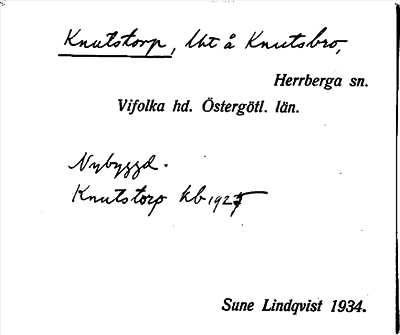 Knutstorp, Uht å Knutsbro,
Herrberga sn.
Vifolka hd. Östergötl. län.
Nybyggd.
Knutstorp kb 1927
Sune Lindqvist 1934.